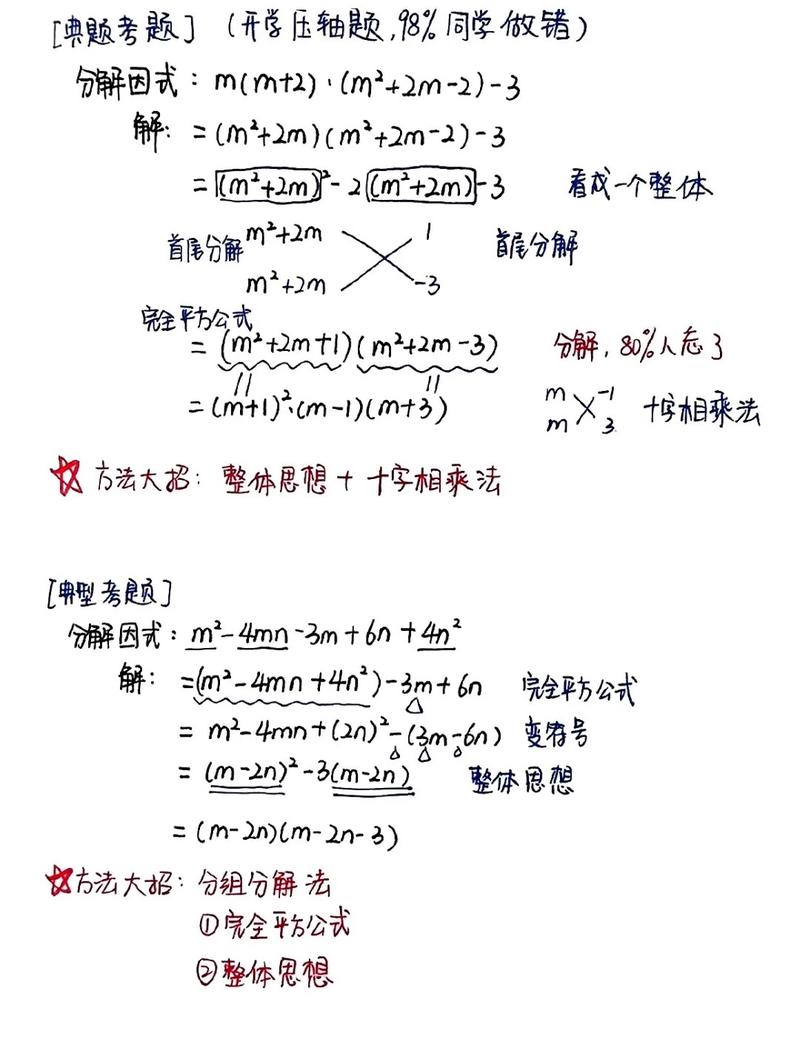 [典题考题] (开学压轴题,98%同学做错)
分解因式: m(m+2)·(m²+2m-2)-3
解: =(m²+2m)(m²+2m-2)-3
=(m²+2m)²-2(m²+2m)-3 看成一个整体
首尾分解 m²+2m 1 首尾分解
m²+2m -3
完全平方公式
=(m²+2m+1)(m²+2m-3) 分解,80%人忘了
=(m+1)²·(m-1)(m+3) m -1 十字相乘法
m 3
☆方法大招: 整体思想+十字相乘法
[典型考题]
分解因式: m²-4mn-3m+6n+4n²
解: =(m²-4mn+4n²)-3m+6n 完全平方公式
= m²-4mn+(2n)²-(3m-6n) 变符号
= (m-2n)²-3(m-2n) 整体思想
=(m-2n)(m-2n-3)
☆方法大招: 分组分解法
①完全平方公式
②整体思想